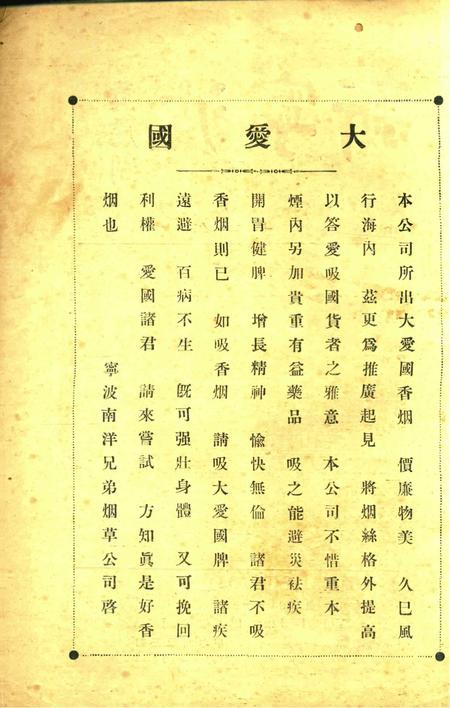 大愛國
本公司所出大愛國香烟　價廉物美　久巳風
行海內　茲更爲推廣起見　將烟絲格外提高
以答愛吸國貨者之雅意　本公司不惜重本
煙內另加貴重有益藥品　吸之能避災祛疾
開胃健脾　增長精神　愉快無倫　諸君不吸
香烟則已　如吸香烟　請吸大愛國牌　諸疾
遠避　百病不生　旣可强壯身體　又可挽回
利權　愛國諸君　請來嘗試　方知眞是好香
烟也　　　寧波南洋兄弟烟草公司啓